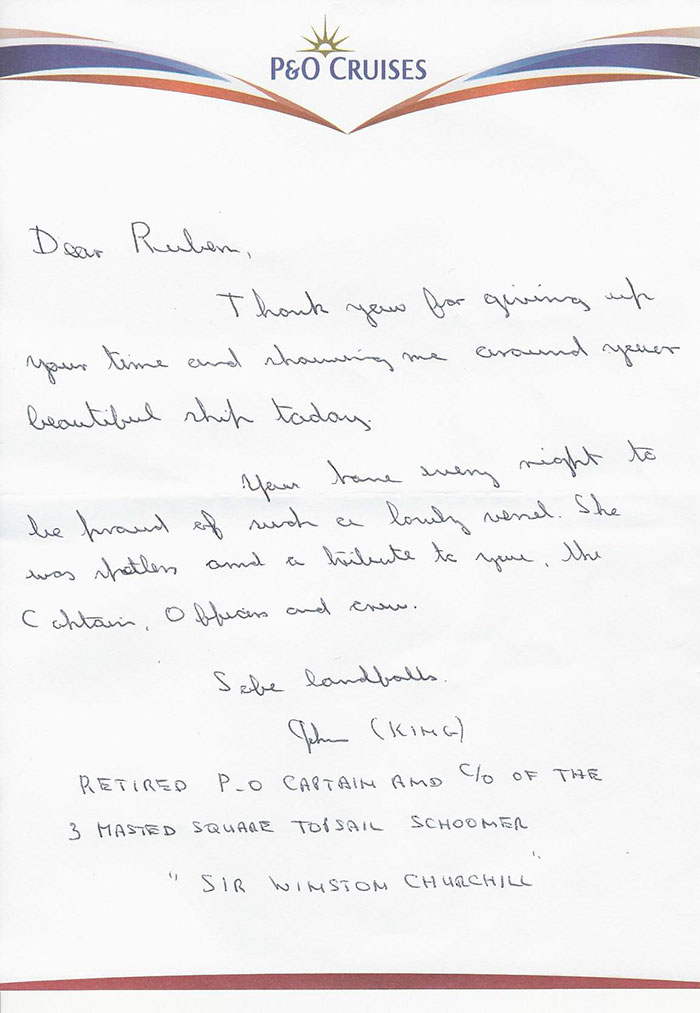 P&O CRUISES
Dear Reuben,
Thank you for giving up
your time and showing me around your
beautiful ship today.
You have every right to
be proud of such a lovely vessel. She
was spotless and a tribute to you, the
Captain, Officers and crew.
Safe landfalls.
John (KING)
RETIRED P_O CAPTAIN AND C/O OF THE
3 MASTED SQUARE TOPSAIL SCHOONER
"SIR WINSTON CHURCHILL"